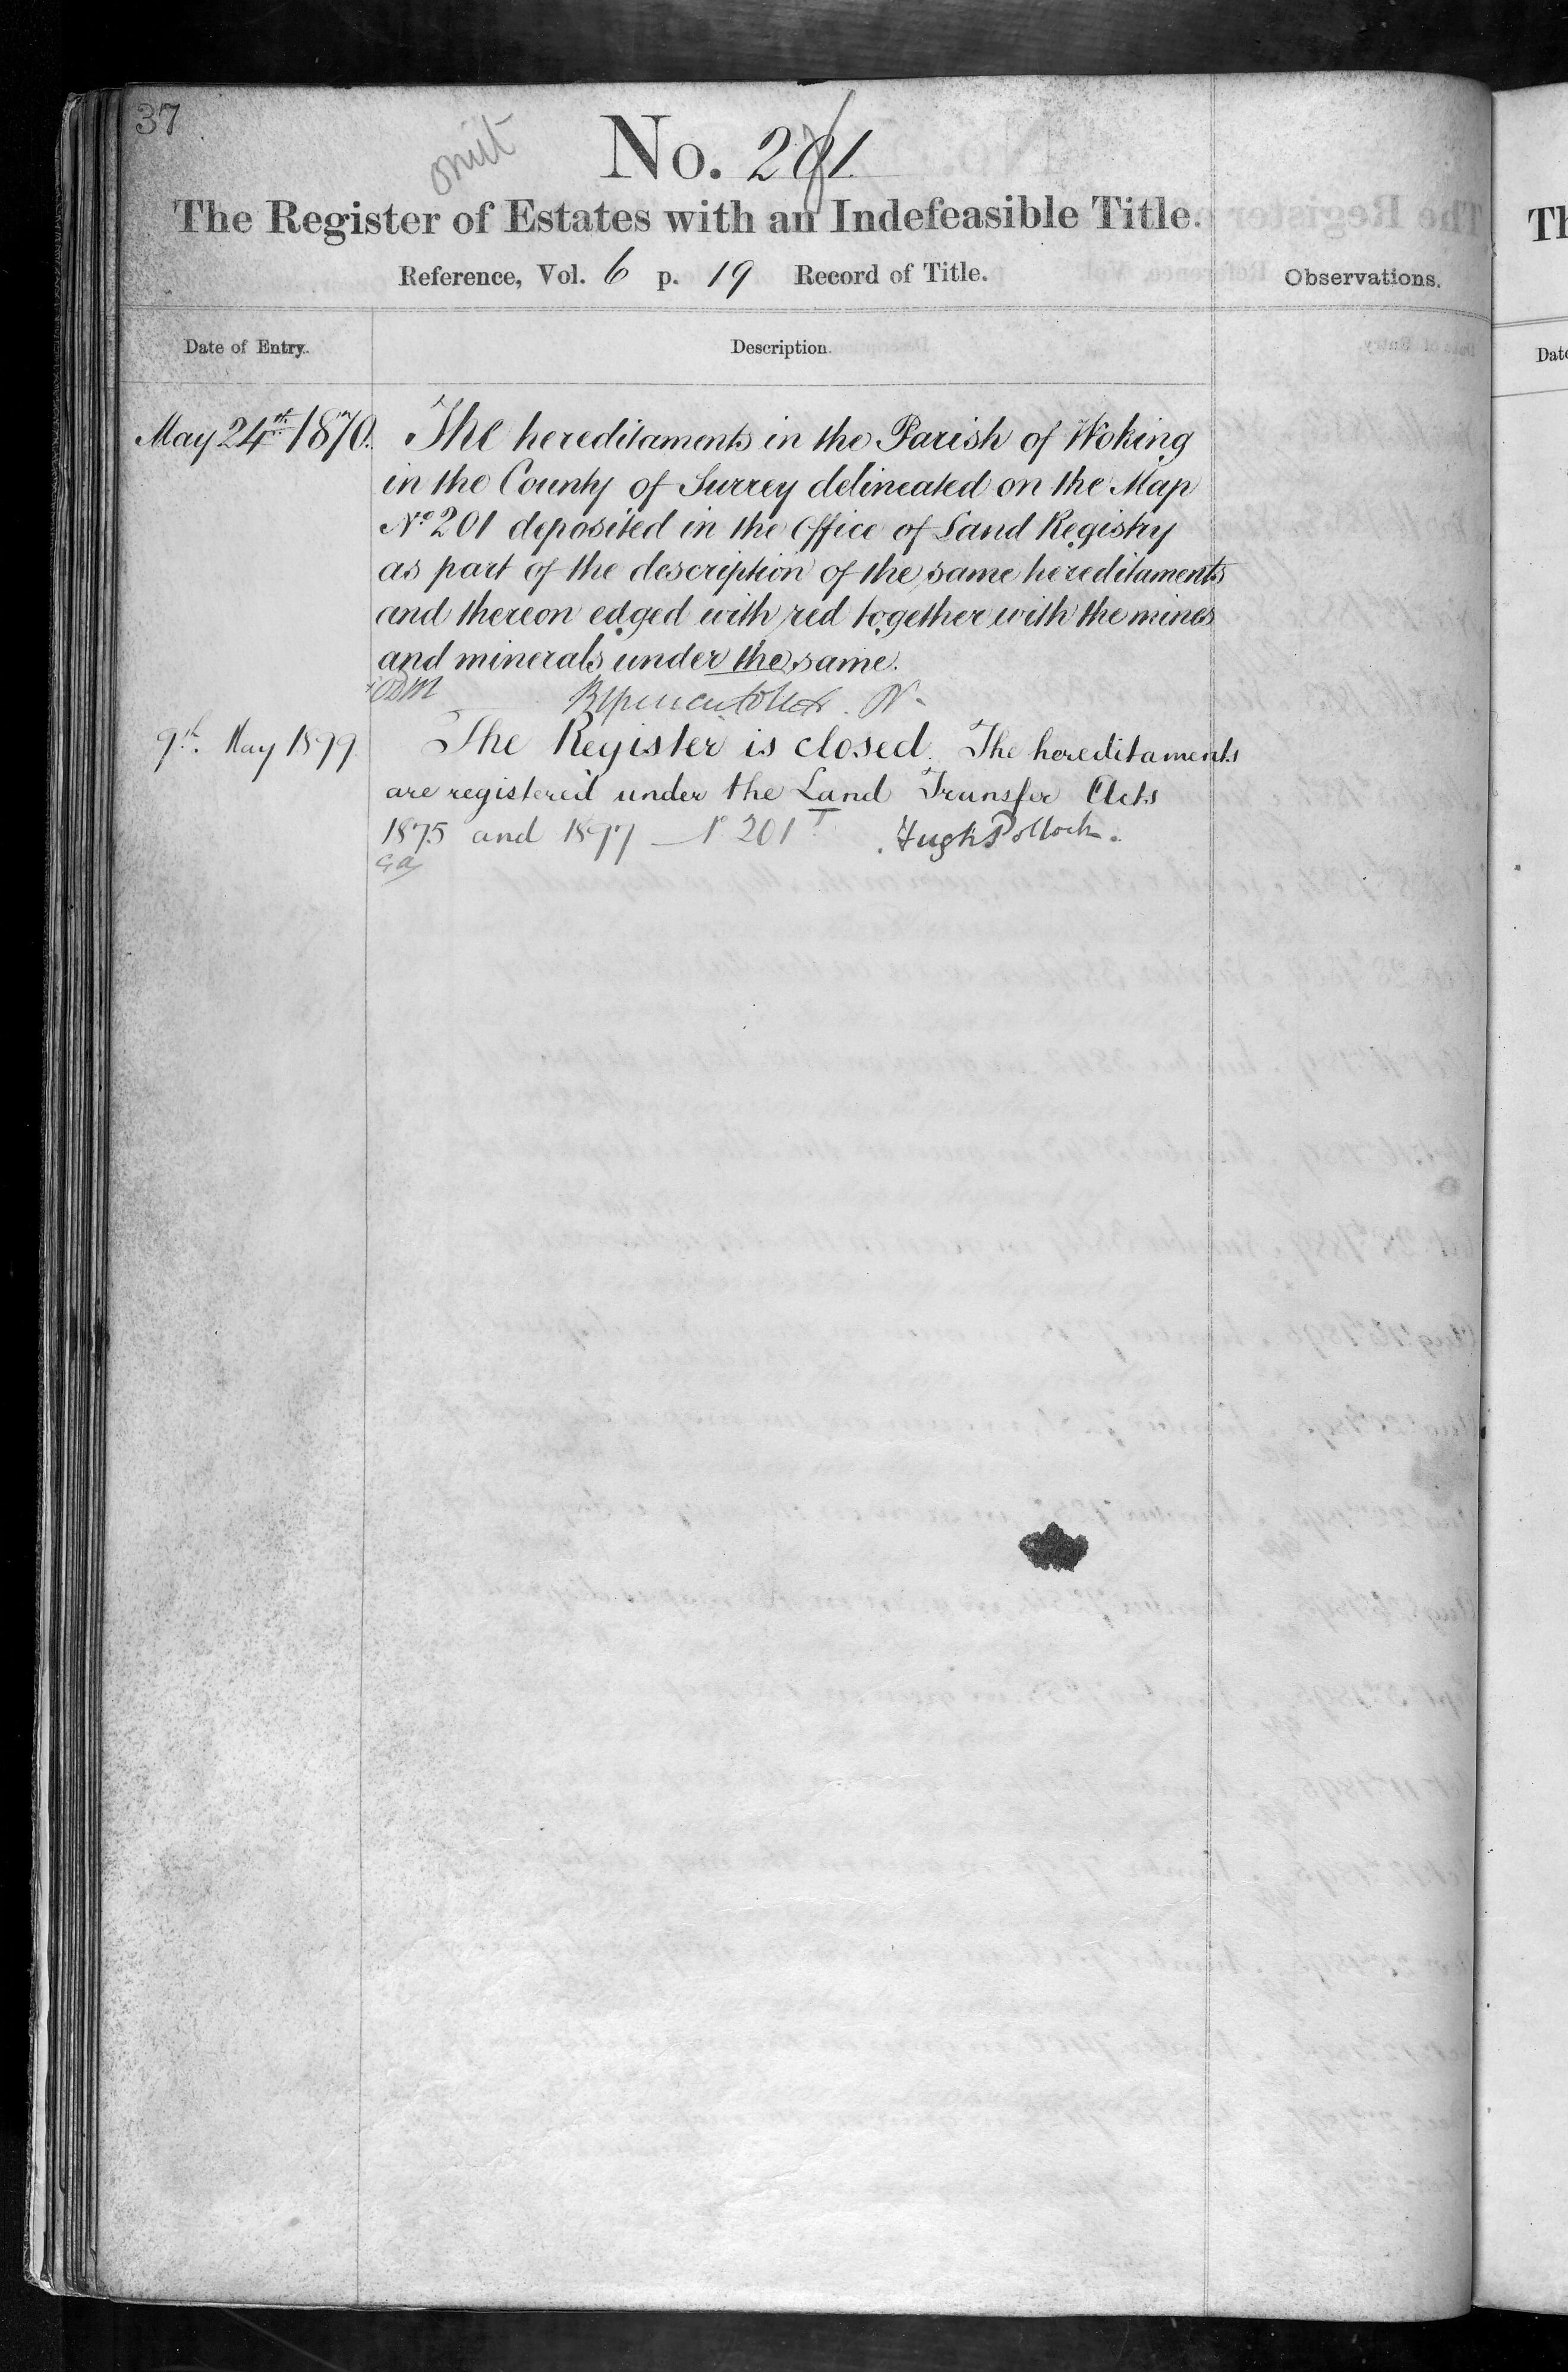 37
omit
No. 201.
The Register of Estates with an Indefeasible Title.
Reference, Vol. 6 p. 19 Record of Title.
Observations.
Date of Entry.
Description.
May 24th 1870.
The hereditaments in the Parish of Woking
in the County of Surrey delineated on the Map
No 201 deposited in the Office of Land Registry
as part of the description of the same hereditaments
and thereon edged with red together with the mines
and minerals under the same.
9th. May 1899.
The Register is closed. The hereditaments
are registered under the Land Transfer Acts
1875 and 1897 No 201
Hugh Pollock.
Th
Date